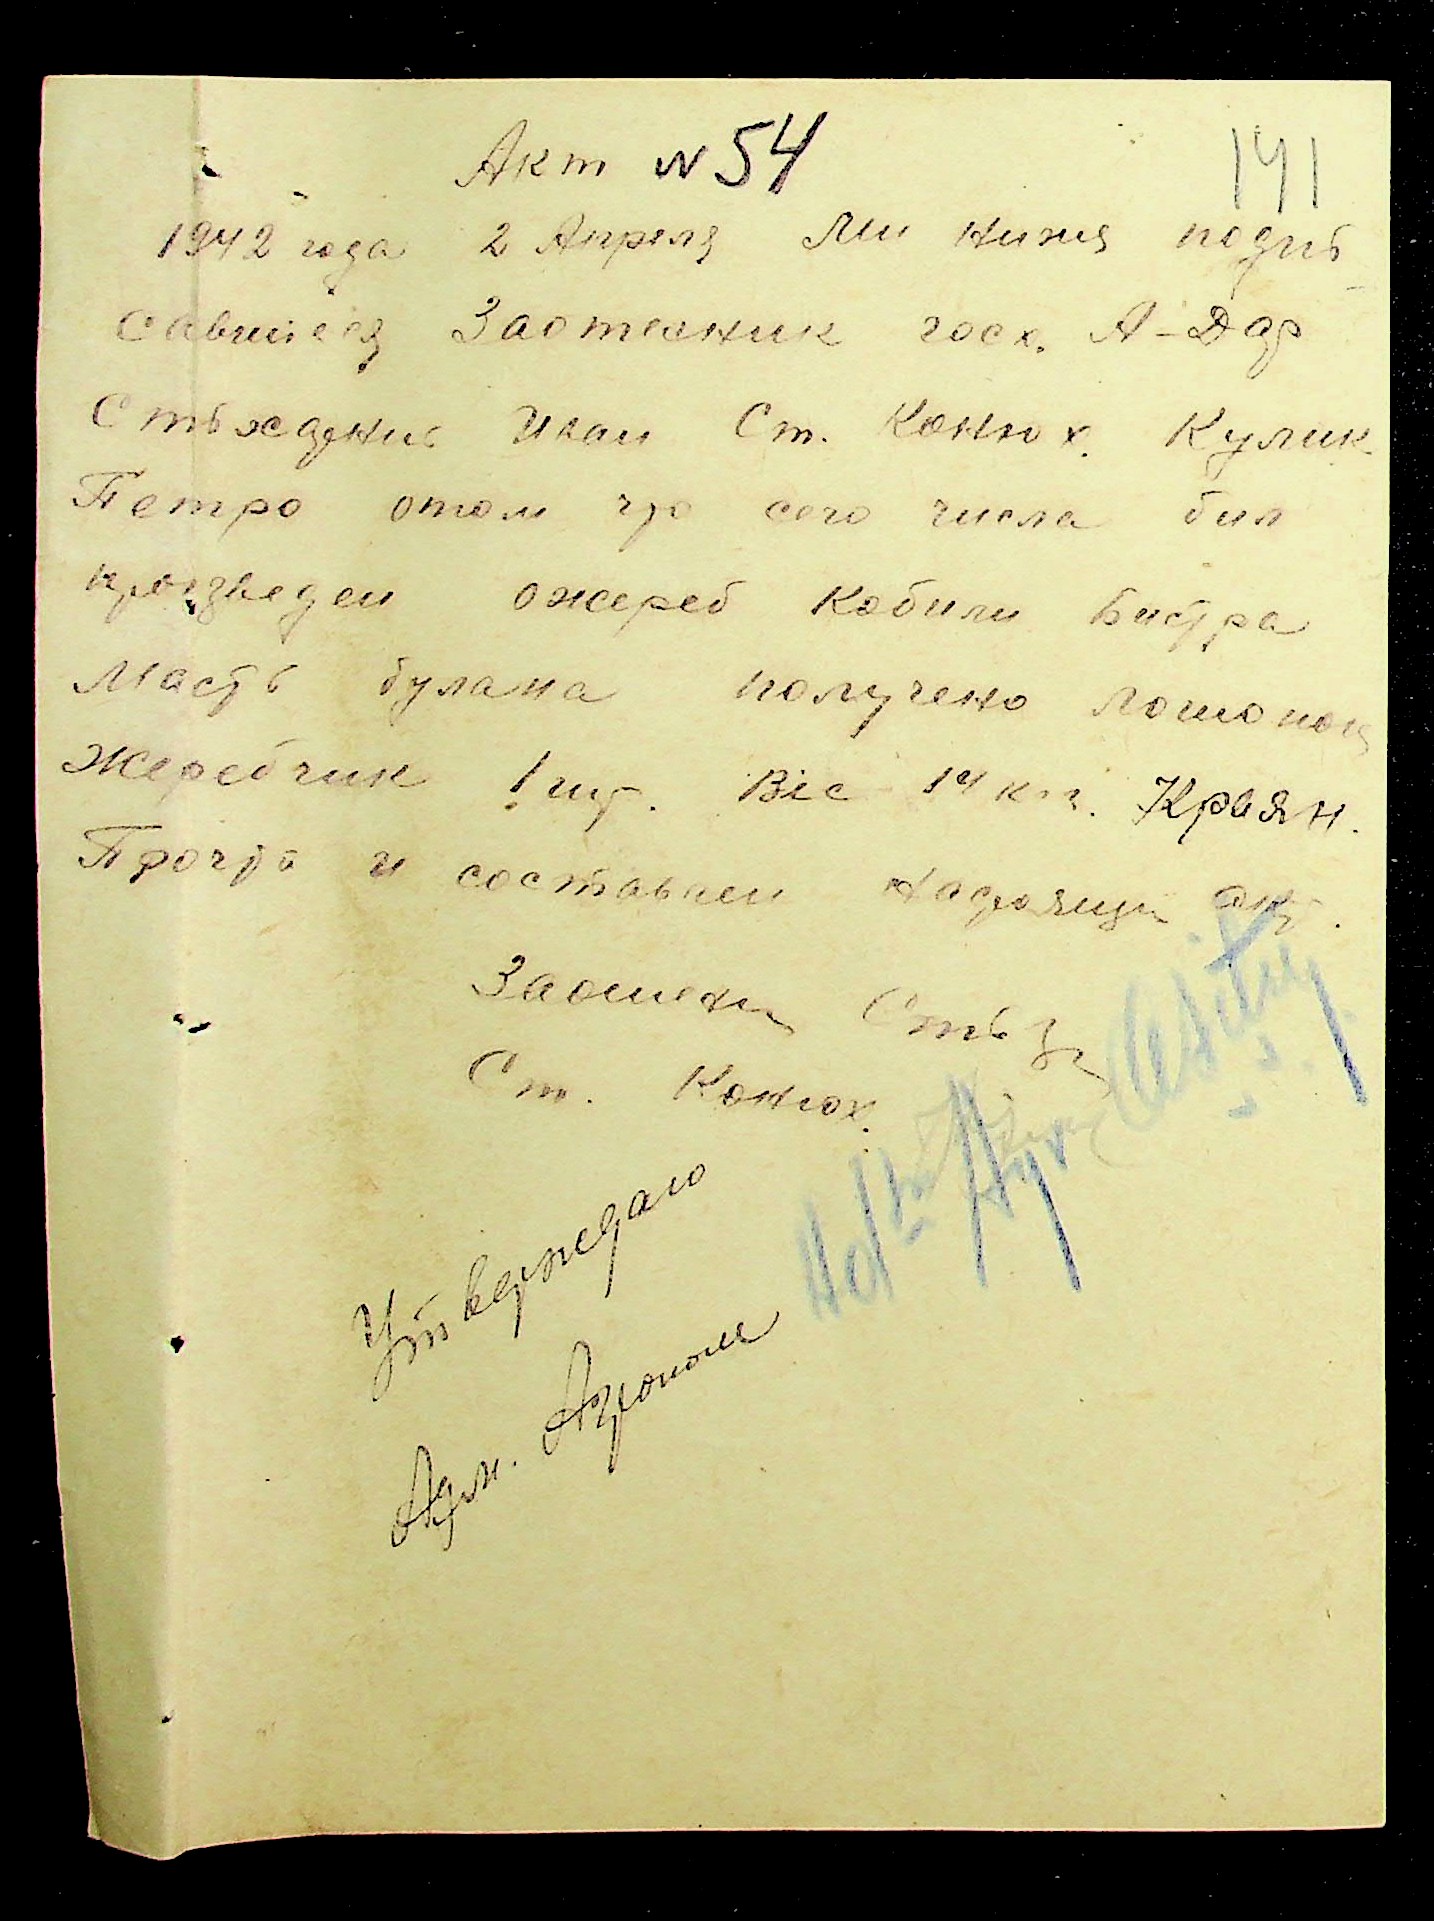 Акт № 54
141
1942 года 2 Апреля Ми нижя подпь
савшіеся Заотехник госх. А-Дар
Ст. Конюх. Кулик
Петро отом что сего числа бил
произведен ожереб Кобили Бистра
Масть булана получено лошонок
Жеребчик 1 шт. Віс 14 кг. Краян.
Прочто и составлен настоящи акт.
Заотехн
Ст. Конюх.
Утверждаю
Адм. Агроном